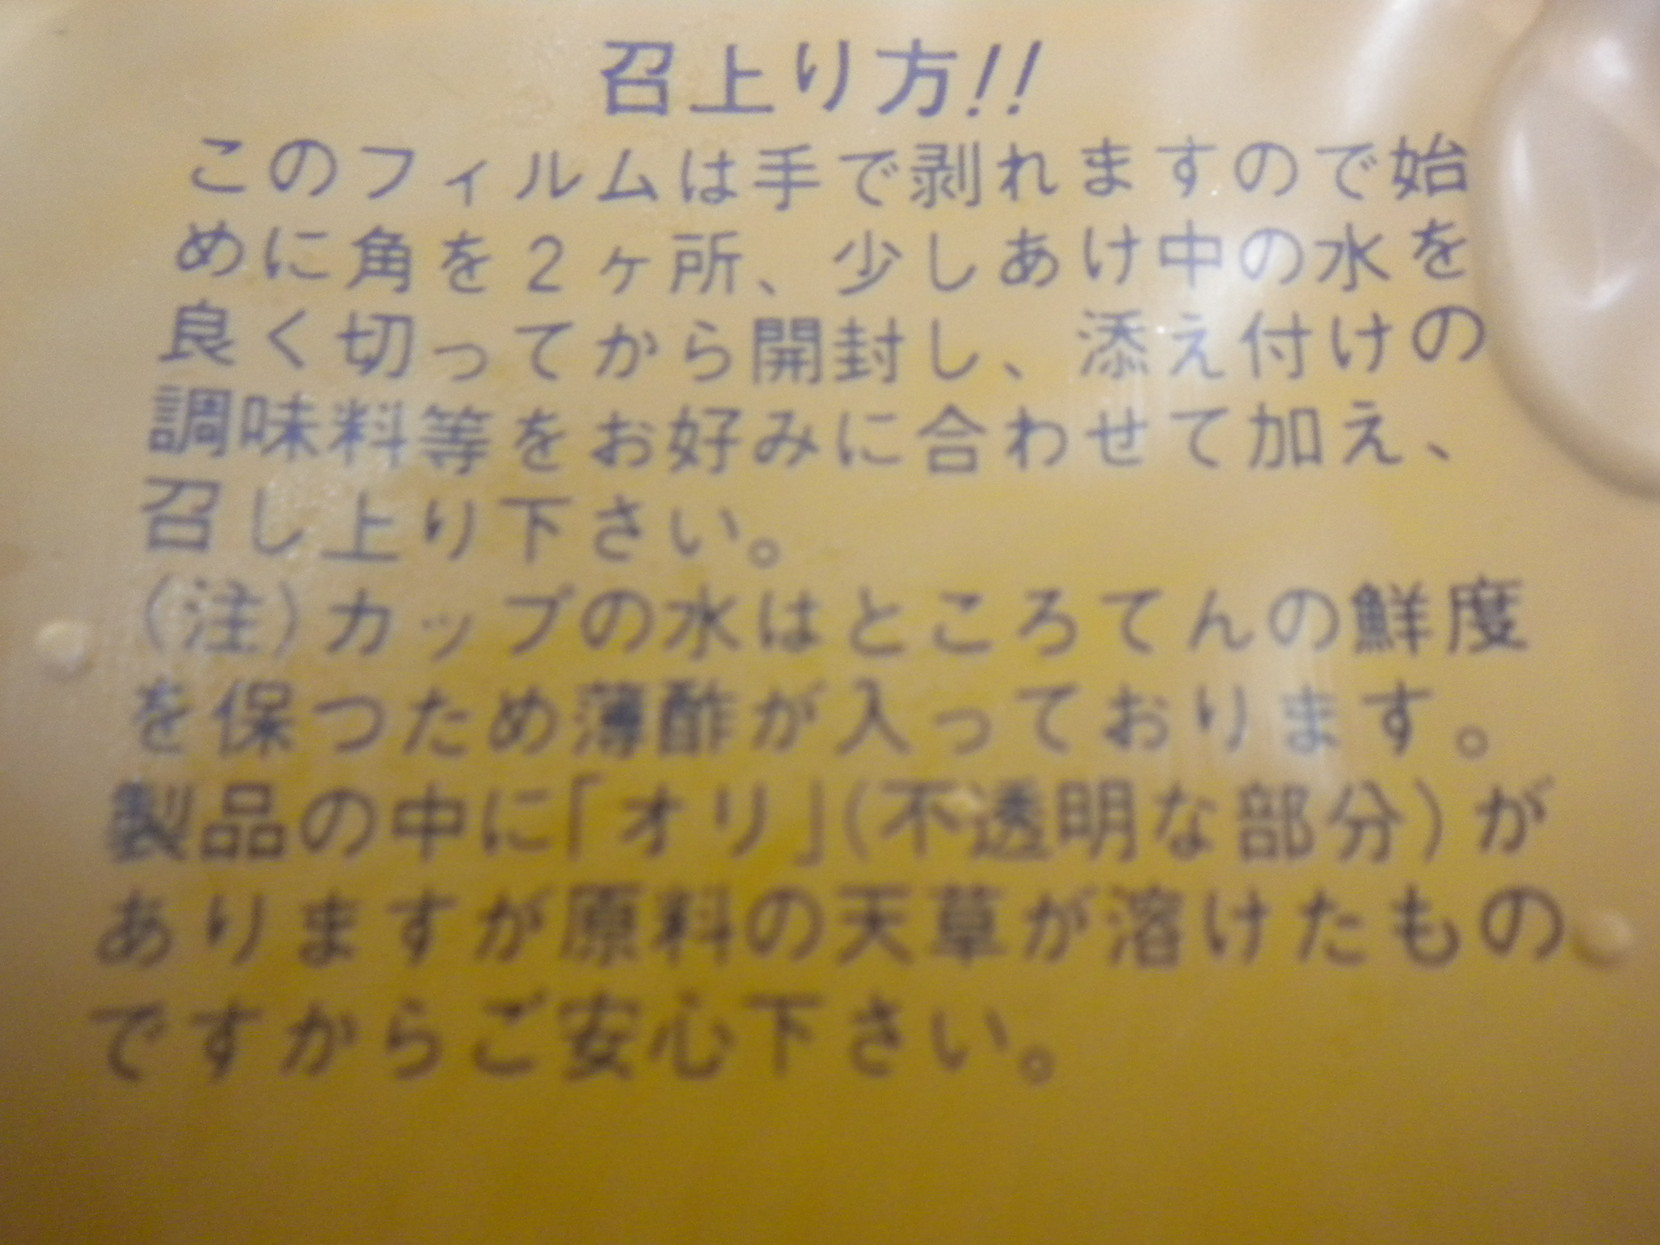 召上り方!!
このフィルムは手で剥れますので始
めに角を2ヶ所、少しあけ中の水を
良く切ってから開封し、添え付けの
調味料等をお好みに合わせて加え、
召し上り下さい。
(注)カップの水はところてんの鮮度
を保つため薄酢が入っております。
製品の中に「オリ」(不透明な部分)が
ありますが原料の天草が溶けたもの
ですからご安心下さい。